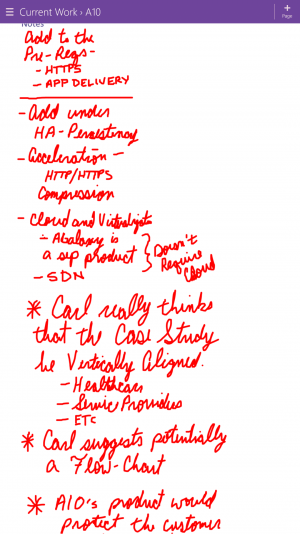 Current Work › A10
+
Page
Notes
add to the
Pre-Reqs -
- HTTPS
- APP DELIVERY
- add under
HA - Persistency
- acceleration -
HTTP/HTTPS
Compression
- Cloud and
- is
a sep product
Doesn't
Require
Cloud
- SDN
* Carl really thinks
that the Case Study
be Vertically aligned.
- Healthcare
- Service Providers
- ETC
* Carl suggests potentially
a Flow-Chart
* A10's product would
protect the customer